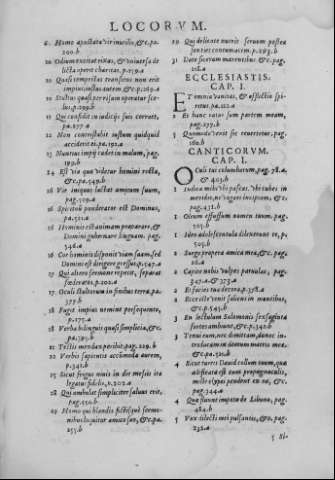 LOCORVM.
11 Homo apostata vir inutilis, &c. pa.
200.b
12 Odium excitat rixas, & vniuersa de
licta operit charitas. pa.259.a
Quasi tempestas transiens non erit
impius, iustus autem &c. pa.269.a
Stultus quasi per risum operatur sce-
lus. pa.299.b
Qui confidit in iudicijs suis corruet,
pa.277.a
12 Non contristabit iustum quidquid
acciderit ei. pa.192.a
13 Nuntius impij cadet in malum, pag.
199.b
14 Est via quæ videtur homini recta,
&c. pa.549.b
16 Vir iniquus lactat amicum suum,
pag.509.a
16 Spirituum ponderator est Dominus,
pa.521.a
16 Hominis est animam præparare, &
Domini gubernare linguam. pag.
346.a
16 Cor hominis disponit viam suam, sed
Domini est dirigere gressus. p.547.a
17 Qui altero sermone repetit, separat
fœderatos. p.202.a
17 Oculi stultorum in finibus terræ. pa.
377.b
18 Fugit impius nemine persequente,
pa.175.a
18 Verba bilinguis quasi simplicia, &c.
pa.505.b
21 Testis mendax peribit. pag.229.b
22 Verbis sapientis accomoda aurem,
p.341.b
25 Sicut frigus niuis in die messis ita
legatus fidelis, p.202.a
28 Qui ambulat simpliciter saluus erit,
pag.550.b
29 Homo qui blandis fictisque sermo-
nibus loquitur amico suo, &c. pa.
255.b
29 Qui delicate nutrit seruum postea
sentiet contumacem. p.293.b
31 Date siceram mœrentibus &c. pag.
ECCLESIASTIS.
CAP. I.
1 ET omnia vanitas, & afflictio spi-
ritus. pa.112.a
2 Et hanc ratus sum partem meam,
pag.277.b
5 Quomodo exiit sic reuertetur, pag.
160.b
CANTICORVM.
CAP. I.
OCuli tui columbarum, pag.78.a.
& 403.b
1 Indica mihi vbi pascas, vbi cubes in
meridie, ne vagari incipiam, &c.
pag.431.b
1 Oleum effusum nomen tuum, pag.
505.b
1 Ideo adolescentulæ dilexerunt te, p.
505.b
2 Surge propera amica mea, &c. pag.
2 Capite nobis vulpes paruulas, pag.
2 Et facies tua decora, p.378.a
2 Ecce iste venit saliens in montibus,
&c. p.545.b
3 En lectulum Salomonis sexaginta
fortes ambiunt, &c. p.340.b
3 Tenui eum, nec dimittam, donec in-
troducam in domum matris meæ.
&c. pa.521.b
4 Sicut turris Dauid collum tuum, quæ
ædificata est cum propugnaculis,
mille clypei pendent ex ea, &c.
pag.344.a
4 Quæ fluunt impetu de Libano, pag.
484.b
5 Vox dilecti mei pulsantis, &c. pag.
238.a